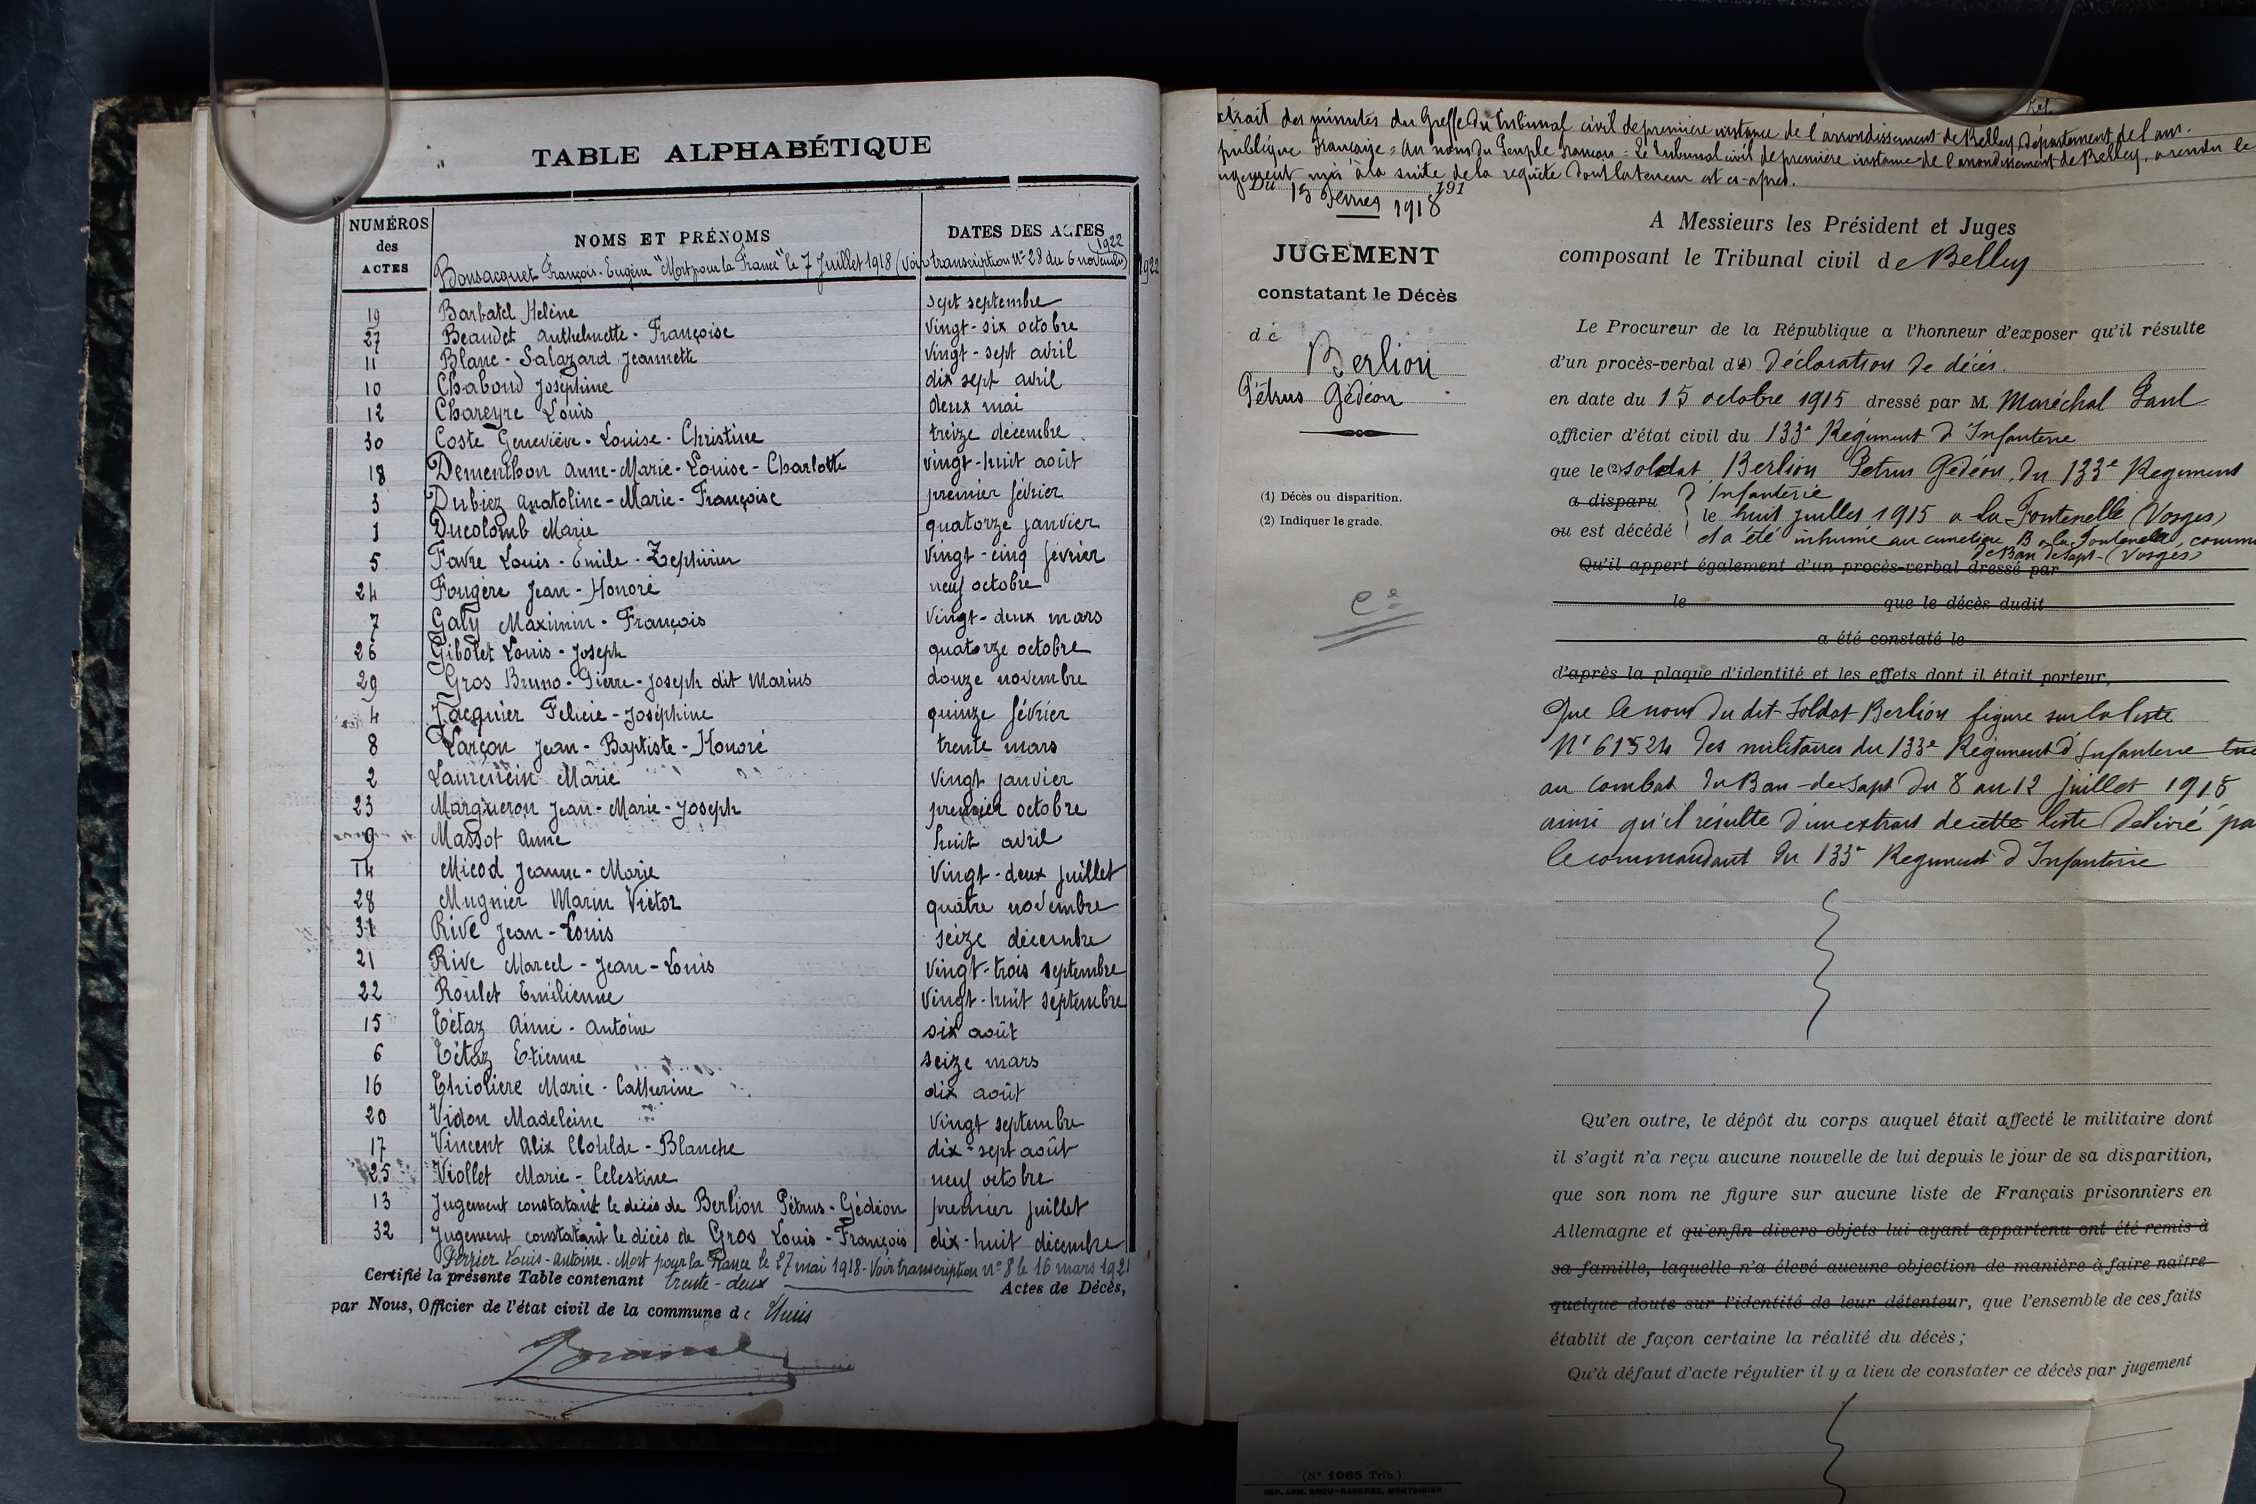 TABLE ALPHABÉTIQUE
NUMÉROS des ACTES
NOMS ET PRÉNOMS
DATES DES ACTES
Bonsacquet François-Eugène "Mort pour la France" le 7 Juillet 1918 (Voir transcription N° 28 du 6 novembre) 1922
1922
19 Barbatel Helène sept septembre
27 Beaudet Anthelmette - Françoise vingt-six octobre
11 Blanc - Salazard Jeannette vingt-sept avril
10 Chaboud Joséphine dix sept avril
12 Chareyre Louis deux mai
30 Coste Geneviève - Louise - Christine treize décembre
18 Dementhon Anne-Marie-Louise-Charlotte vingt-huit août
3 Dubiez Anatoline-Marie-Françoise premier février
1 Ducolomb Marie quatorze janvier
5 Favre Louis-Emile-Zephirin vingt-cinq février
24 Fougère Jean-Honoré neuf octobre
7 Galy Maximin-François vingt-deux mars
26 Gibolet Louis-Joseph quatorze octobre
29 Gros Bruno-Pierre-Joseph dit Marius douze novembre
4 Jacquier Felicie-Joséphine quinze février
8 Larçon Jean-Baptiste-Honoré trente mars
2 Laurencin Marie vingt janvier
23 Margueron Jean-Marie-Joseph premier octobre
9 Massot Anne huit avril
14 Micod Jeanne-Marie vingt-deux juillet
28 Mugnier Marin Victor quatre novembre
31 Rive Jean-Louis seize décembre
21 Rive Marcel-Jean-Louis vingt-trois septembre
22 Roulet Emilienne vingt-huit septembre
15 Tétaz Aimé-Antoine six août
6 Tétaz Etienne seize mars
16 Thioliere Marie-Catherine dix août
20 Vidon Madeleine vingt septembre
17 Vincent Alix Clotilde-Blanche dix-sept août
25 Viollet Marie-Celestine neuf octobre
13 Jugement constatant le décès de Berlion Pétrus-Gédéon premier juillet
32 Jugement constatant le décès de Gros Louis-François dix-huit décembre
Perrier Louis-Antoine. Mort pour la France le 27 mai 1918. Voir transcription n° 8 le 16 mars 1921
Certifié la présente Table contenant trente-deux Actes de Décès,
par Nous, Officier de l'état civil de la commune de
Extrait des minutes du Greffe du Tribunal civil de première instance de l'arrondissement de Belley, département de l'ain.
publique Française = Au nom du Peuple Français = Le Tribunal civil de première instance de l'arrondissement de Belley, a rendu le
ugement mis à la suite de la requête dont la teneur est ci-après.
Du 15 Février 1918 191
JUGEMENT
constatant le Décès
de Berlion
Pétrus Gédéon
(1) Décès ou disparition.
(2) Indiquer le grade.
A Messieurs les Président et Juges
composant le Tribunal civil de Belley
Le Procureur de la République a l'honneur d'exposer qu'il résulte
d'un procès-verbal d(1) déclaration de décès.
en date du 15 octobre 1915 dressé par M. Maréchal Paul
officier d'état civil du 133e Régiment d'Infanterie
que le (2) soldat Berlion Pétrus Gédéon, du 133e Régiment
a disparu d'Infanterie
ou est décédé le huit juillet 1915 a la Fontenelle (Vosges)
et a été inhumé au cimetière B a la Fontenelle, commu
de Ban de Sapt - (Vosges)
Qu'il appert également d'un procès-verbal dressé par
le que le décès dudit
a été constaté le
d'après la plaque d'identité et les effets dont il était porteur,
Que le nom du dit Soldat Berlion figure sur la liste
N° 61524 des militaires du 133e Régiment d'Infanterie tué
au combat du Ban-de-Sapt du 8 au 12 juillet 1915
ainsi qu'il résulte d'un extrait de cette liste délivré pa
le commandant du 133e Régiment d'Infanterie
Qu'en outre, le dépôt du corps auquel était affecté le militaire dont
il s'agit n'a reçu aucune nouvelle de lui depuis le jour de sa disparition,
que son nom ne figure sur aucune liste de Français prisonniers en
Allemagne et qu'enfin divers objets lui ayant appartenu ont été remis à
sa famille, laquelle n'a élevé aucune objection de manière à faire naître
quelque doute sur l'identité de leur détenteur, que l'ensemble de ces faits
établit de façon certaine la réalité du décès;
Qu'à défaut d'acte régulier il y a lieu de constater ce décès par jugement
(N° 1065 Trib.)